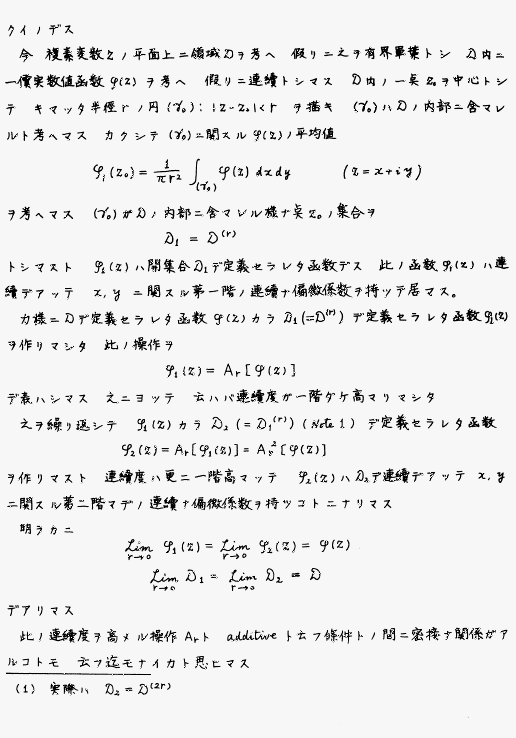 クイノデス
今 複素変数 z ノ平面上ニ領域 D ヲ考ヘ 假リニ之ヲ有界單葉トシ D 内ニ
一價実数値函数 φ(z) ヲ考ヘ 假リニ連續トシマス D内ノ一点 z₀ ヲ中心トシ
テ キマッタ半径 r ノ円 (γ₀): |z-z₀|<r ヲ描キ (γ₀) ハ D ノ内部ニ含マレ
ルト考ヘマス カクシテ (γ₀) ニ関スル φ(z) ノ平均値
φ₁(z₀) = 1/πr² ∫_(γ₀) φ(z) dxdy (z = x+iy)
ヲ考ヘマス (γ₀) ガ D ノ内部ニ含マレル様ナ点 z₀ ノ集合ヲ
D₁ = D^(r)
トシマスト φ₁(z) ハ開集合 D₁ デ定義セラレタ函数デス 此ノ函数 φ₁(z) ハ連
續デアッテ x, y ニ関スル第一階ノ連續ナ偏微係数ヲ持ッテ居マス。
カ様ニ D デ定義セラレタ函数 φ(z) カラ D₁(=D^(r)) デ定義セラレタ函数 φ₁(z)
ヲ作リマシタ 此ノ操作ヲ
φ₁(z) = Ar[φ(z)]
デ表ハシマス 之ニヨッテ 云ハバ連續度ガ一階ダケ高マリマシタ
之ヲ繰リ返シテ φ₁(z) カラ D₂ (= D₁^(r)) (Note 1) デ定義セラレタ函数
φ₂(z) = Ar[φ₁(z)] = Ar²[φ(z)]
ヲ作リマスト 連續度ハ更ニ一階高マッテ φ₂(z) ハ D₂ デ連續デアッテ x, y
ニ関スル第二階マデノ連續ナ偏微係数ヲ持ツコトニナリマス
明ラカニ
Lim_{r→0} φ₁(z) = Lim_{r→0} φ₂(z) = φ(z)
Lim_{r→0} D₁ = Lim_{r→0} D₂ = D
デアリマス
此ノ連續度ヲ高メル操作 Ar ト additive ト云フ條件トノ間ニ密接ナ関係ガア
ルコトモ 云フ迄モナイカト思ヒマス
(1) 実際ハ D₂ = D^(2r)